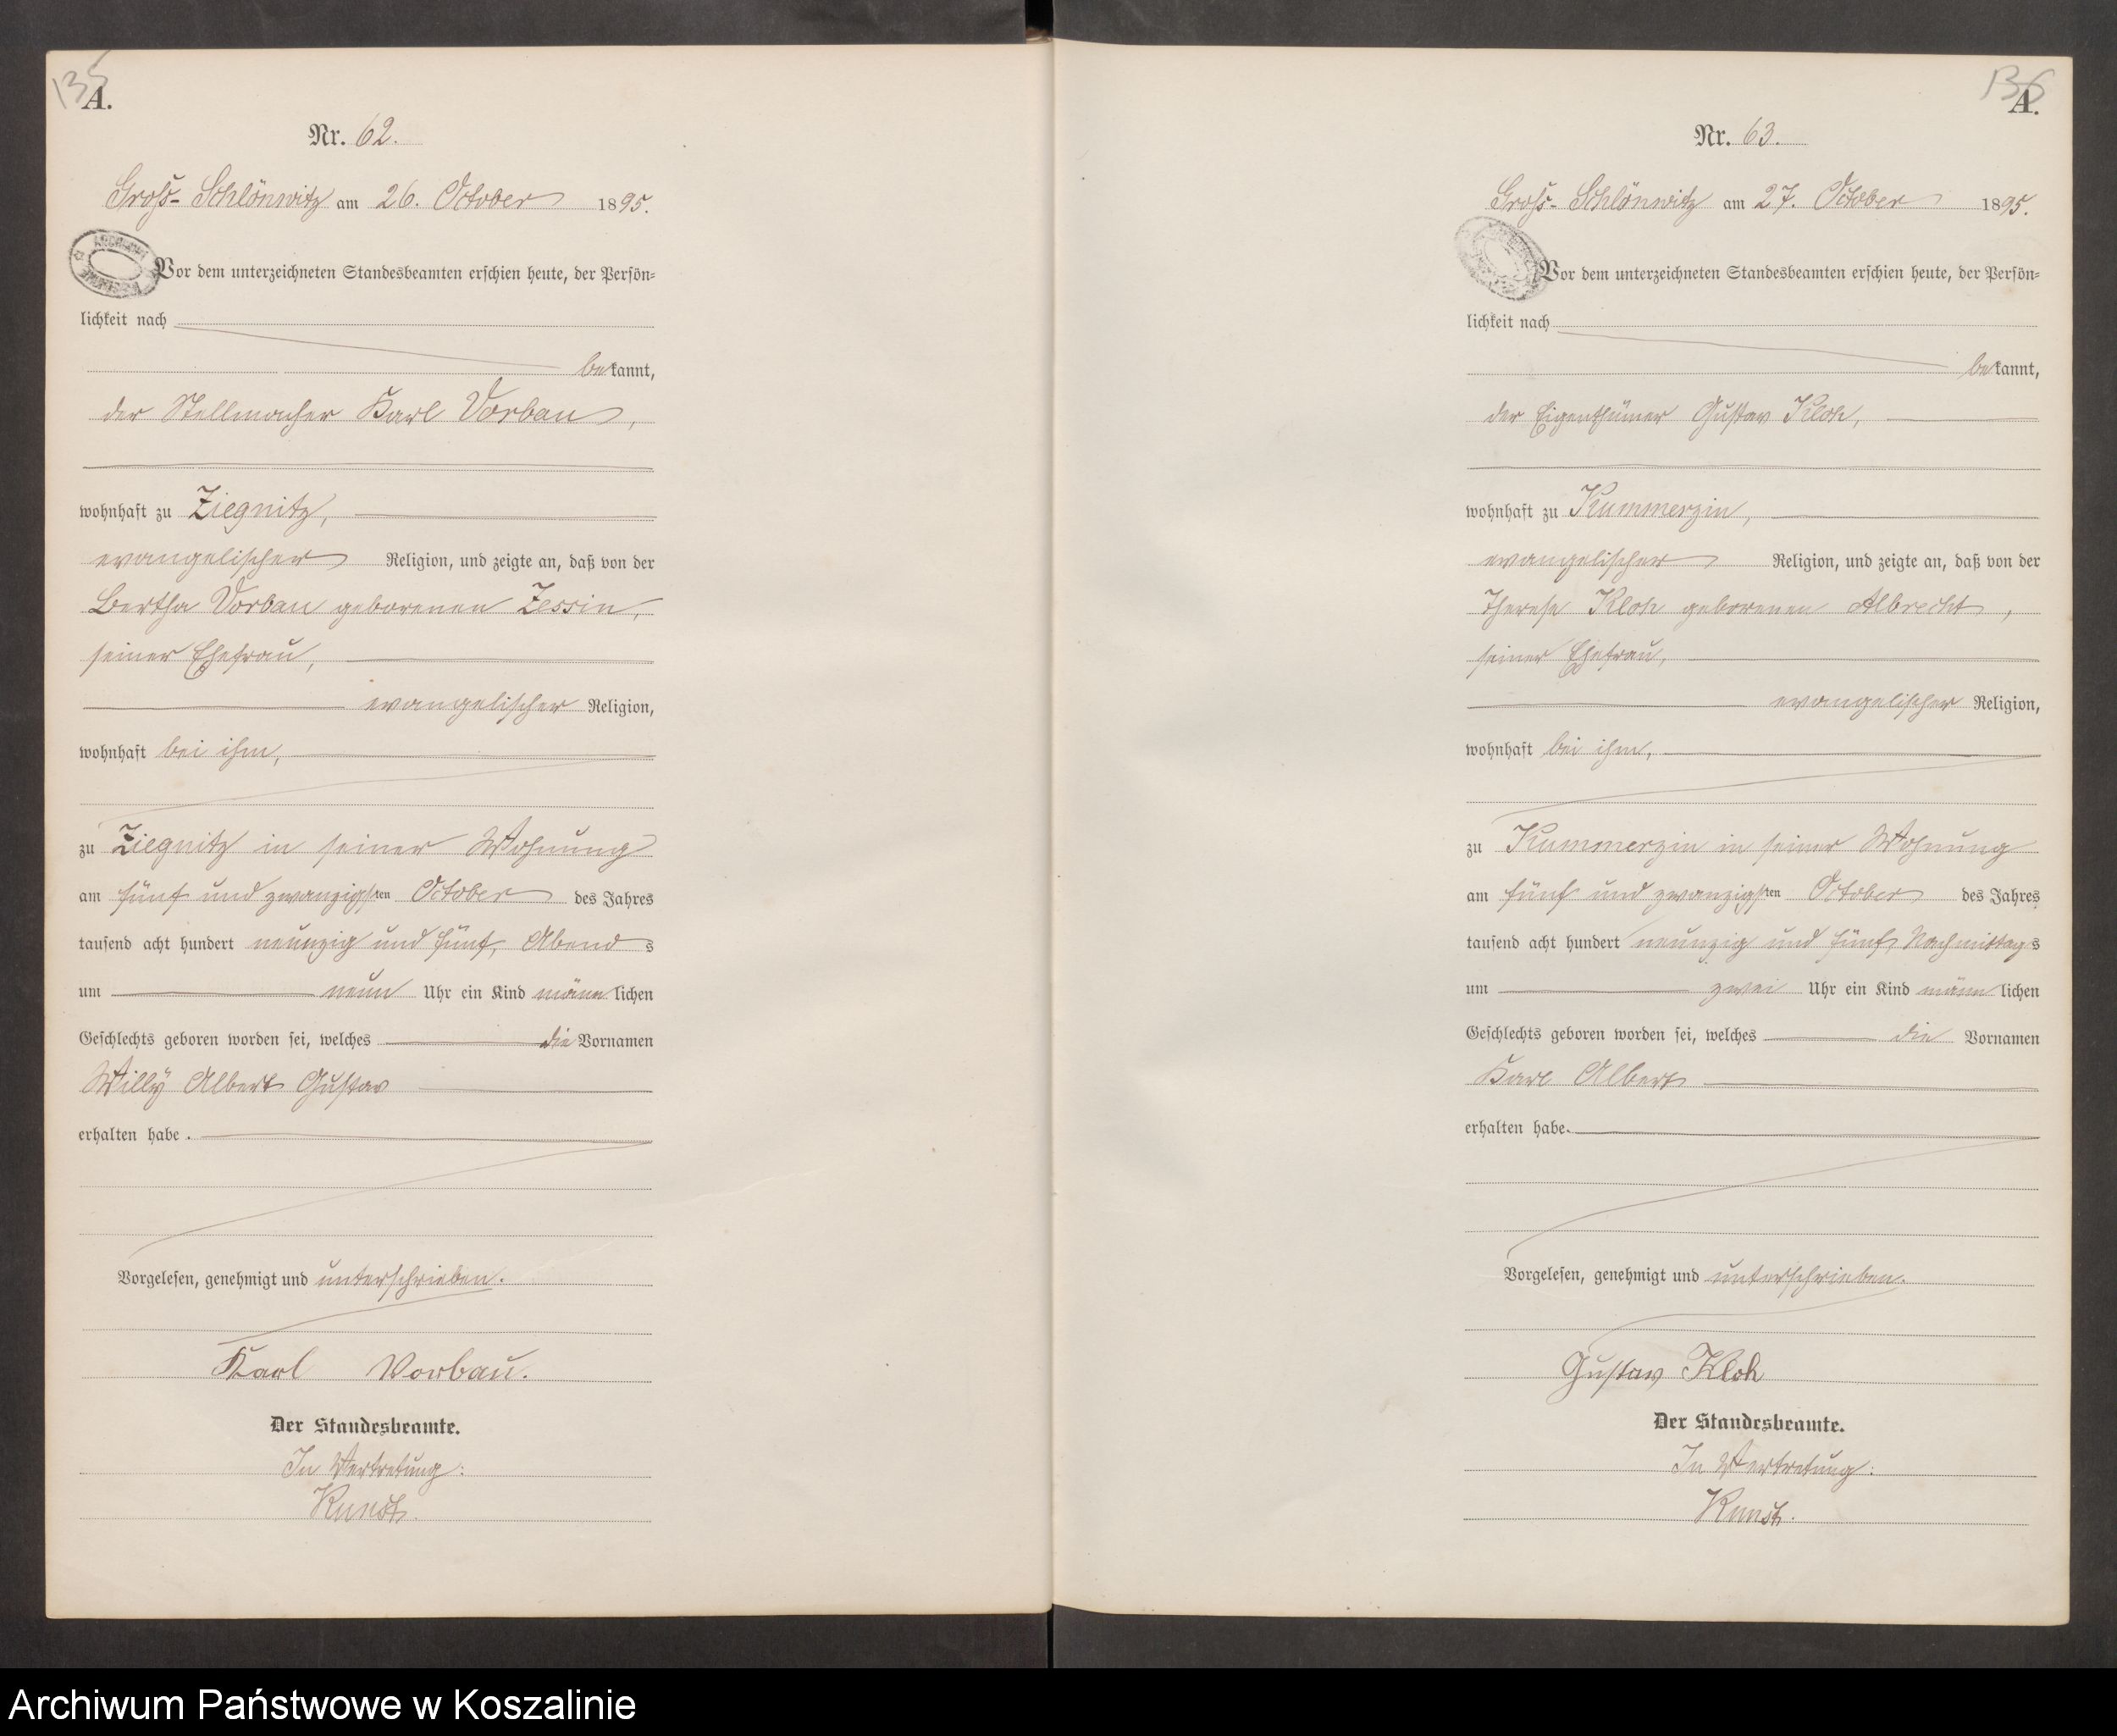 135
A.
Nr. 62.
Groß-Schlönwitz am 26. October 1895.
Vor dem unterzeichneten Standesbeamten erschien heute, der Persön=
lichkeit nach
bekannt,
der Stellmacher Karl Vorbau,
wohnhaft zu Ziegnitz,
evangelischer Religion, und zeigte an, daß von der
Bertha Vorbau geborenen Zessin,
seiner Ehefrau,
evangelischer Religion,
wohnhaft bei ihm,
zu Ziegnitz in seiner Wohnung
am fünf und zwanzigsten October des Jahres
tausend acht hundert neunzig und fünf, Abends
um neun Uhr ein Kind männlichen
Geschlechts geboren worden sei, welches die Vornamen
Willy Albert Gustav
erhalten habe.
Vorgelesen, genehmigt und unterschrieben.
Karl Vorbau.
Der Standesbeamte.
In Vertretung:
Kunst.
136
A.
Nr. 63.
Groß-Schlönwitz am 27. October 1895.
Vor dem unterzeichneten Standesbeamten erschien heute, der Persön=
lichkeit nach
bekannt,
der Eigenthümer Gustav Kloh,
wohnhaft zu Kummerzin,
evangelischer Religion, und zeigte an, daß von der
Therese Kloh geborenen Albrecht,
seiner Ehefrau,
evangelischer Religion,
wohnhaft bei ihm,
zu Kummerzin in seiner Wohnung
am fünf und zwanzigsten October des Jahres
tausend acht hundert neunzig und fünf, Nachmittags
um zwei Uhr ein Kind männlichen
Geschlechts geboren worden sei, welches die Vornamen
Karl Albert
erhalten habe.
Vorgelesen, genehmigt und unterschrieben.
Gustav Kloh
Der Standesbeamte.
In Vertretung:
Kunst.
Archiwum Państwowe w Koszalinie